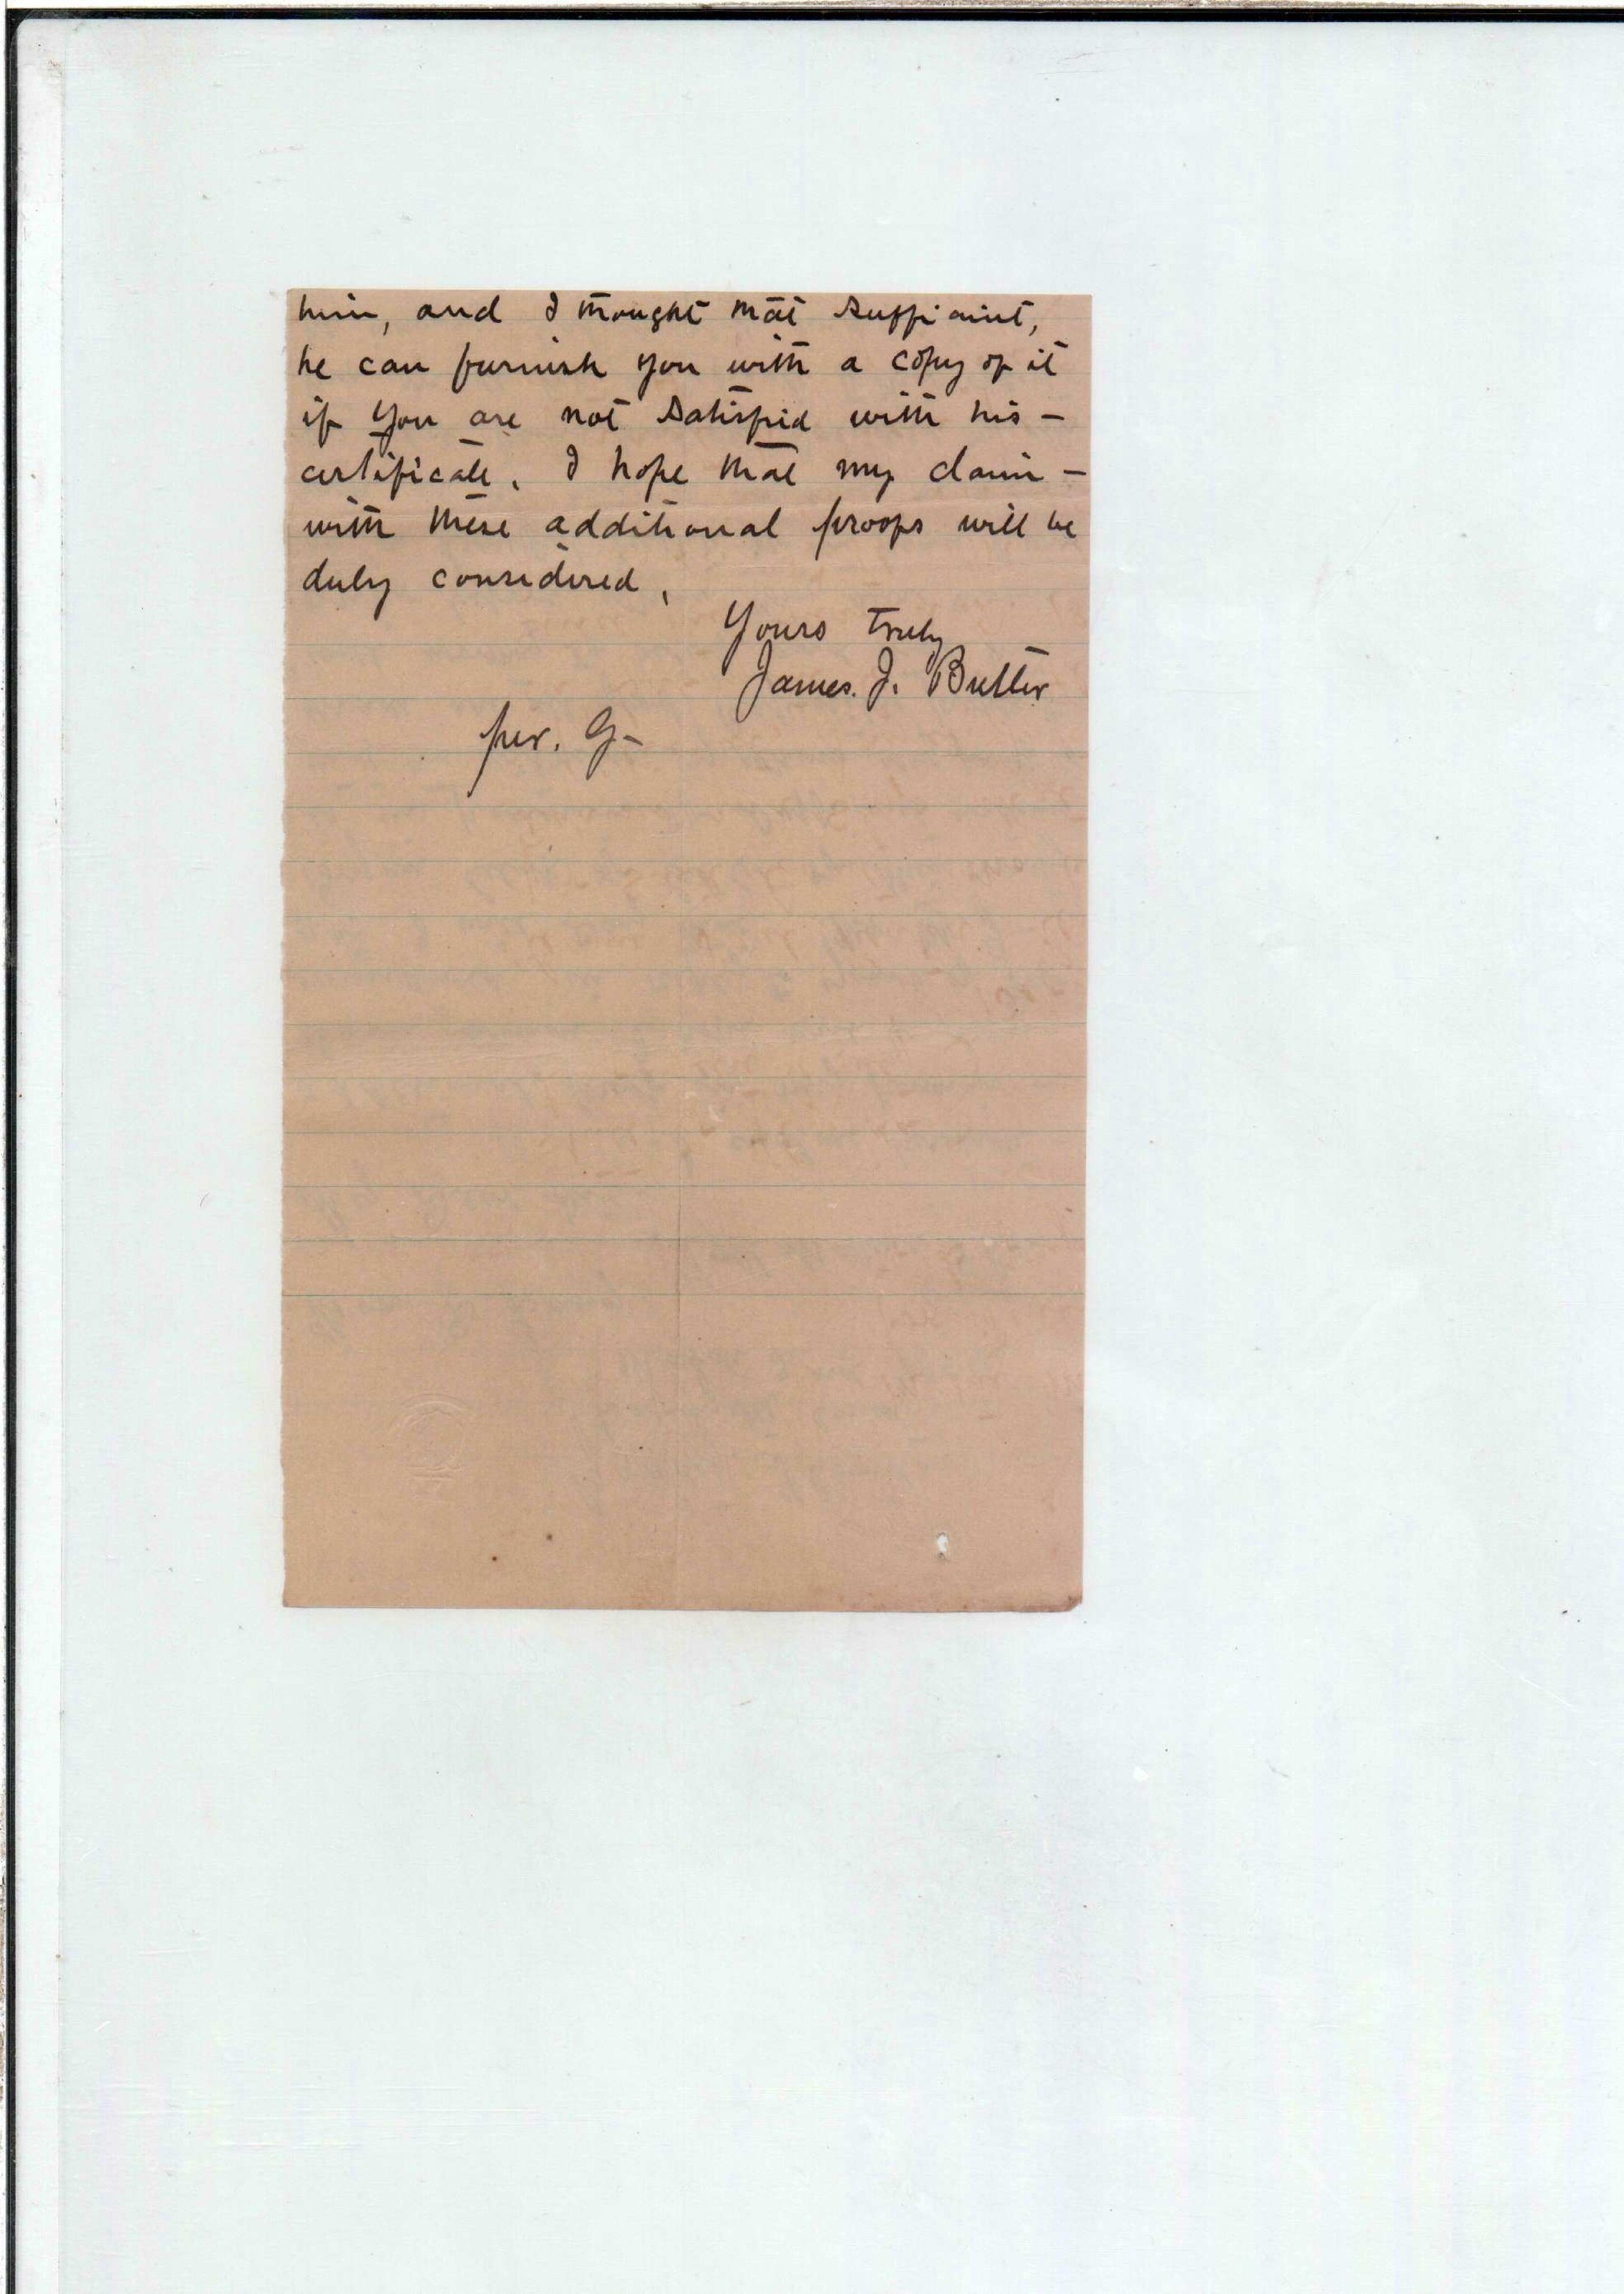 him, and I thought that sufficient,
he can furnish you with a copy of it
if you are not satisfied with his -
certificate. I hope that my claim -
with these additional proofs will be
duly considered,
Yours truly
James. J. Butler
per. G-